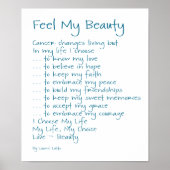 Feel My Beauty
Cancer changes living but
In my life I choose
.... to know my love
.... to believe in hope
.... to keep my faith
.... to embrace my peace
.... to build my friendships
.... to keep my sweet memories
.... to accept my grace
.... to embrace my courage
I Choose My Life
My Life, My Choice
Love - Beauty
By